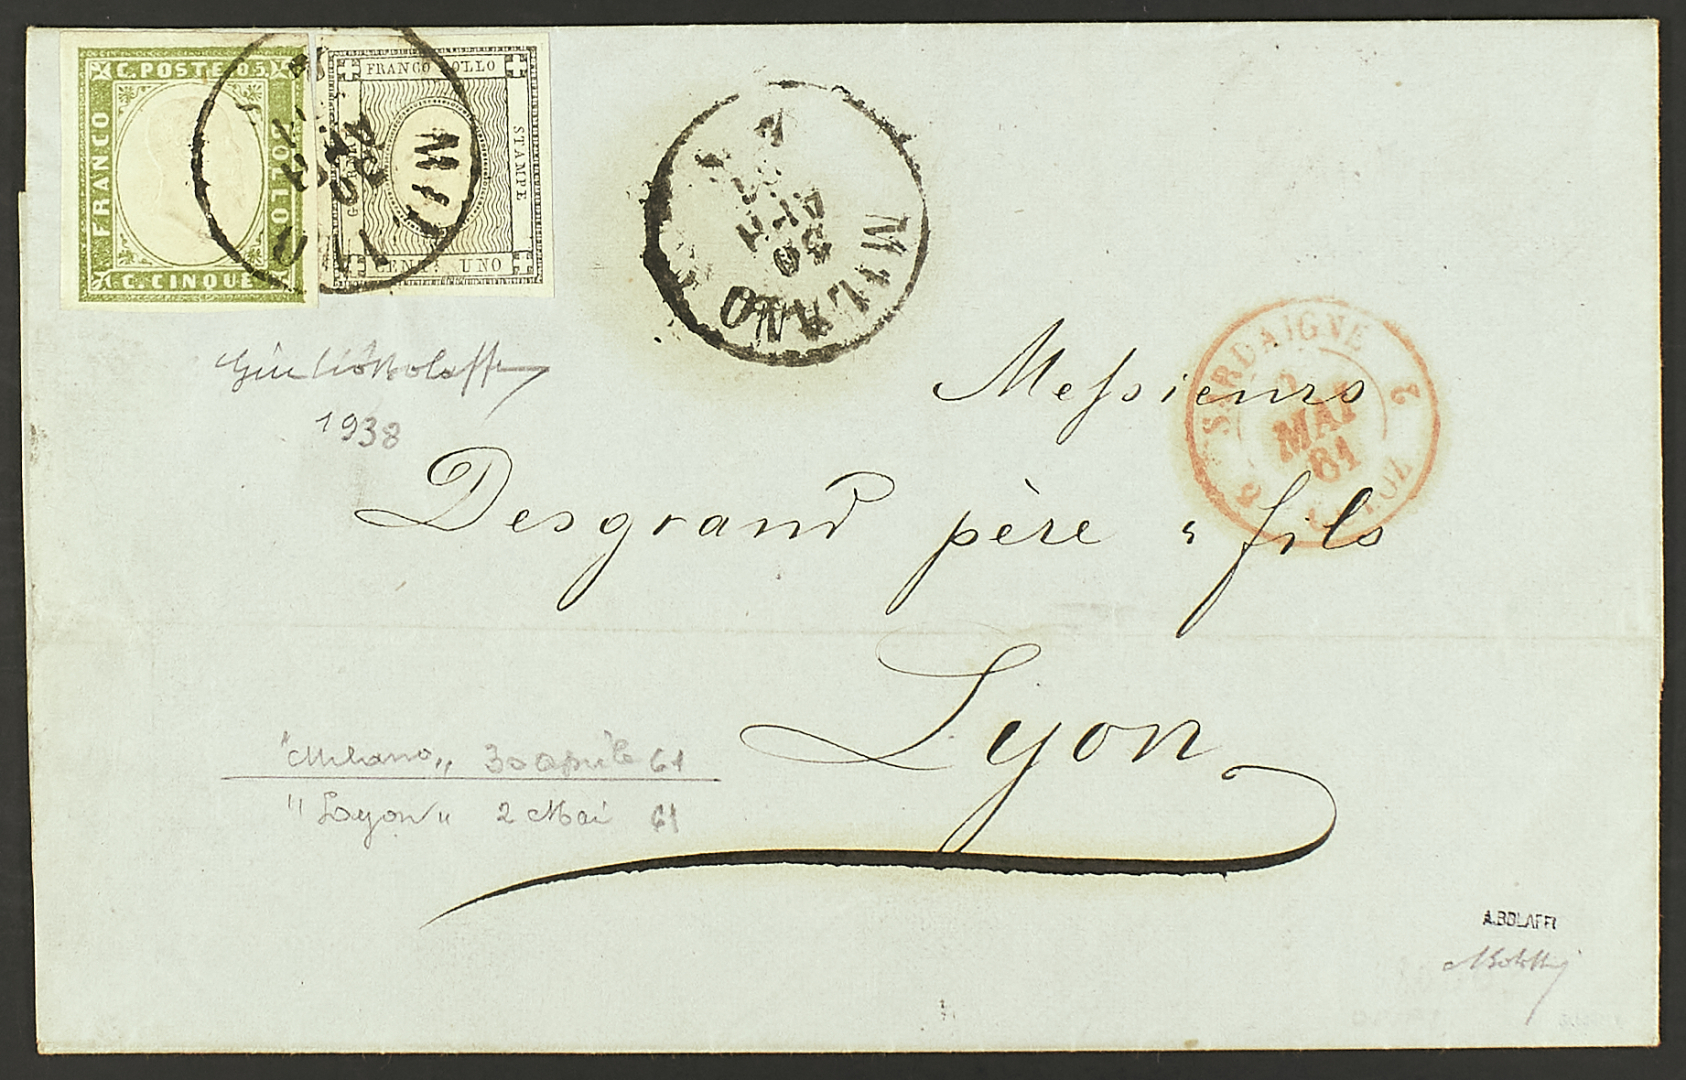 C. POSTE 05
FRANCO
BOLLO
C. CINQUE
FRANCO BOLLO
STAMPE
CENT: UNO
MILANO
30
APR
MILANO
30
APR
61
SARDAIGNE
2
MAI
61
2 CULOZ 2
Giulio Bolaffi
1938
Messieurs
Desgrand père & fils
Lyon
"Milano" 30 aprile 61
"Lyon" 2 Mai 61
A. BOLAFFI